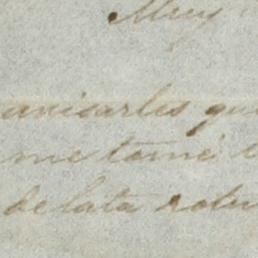 Muy
avisarles que
me tomé
de lata rotu